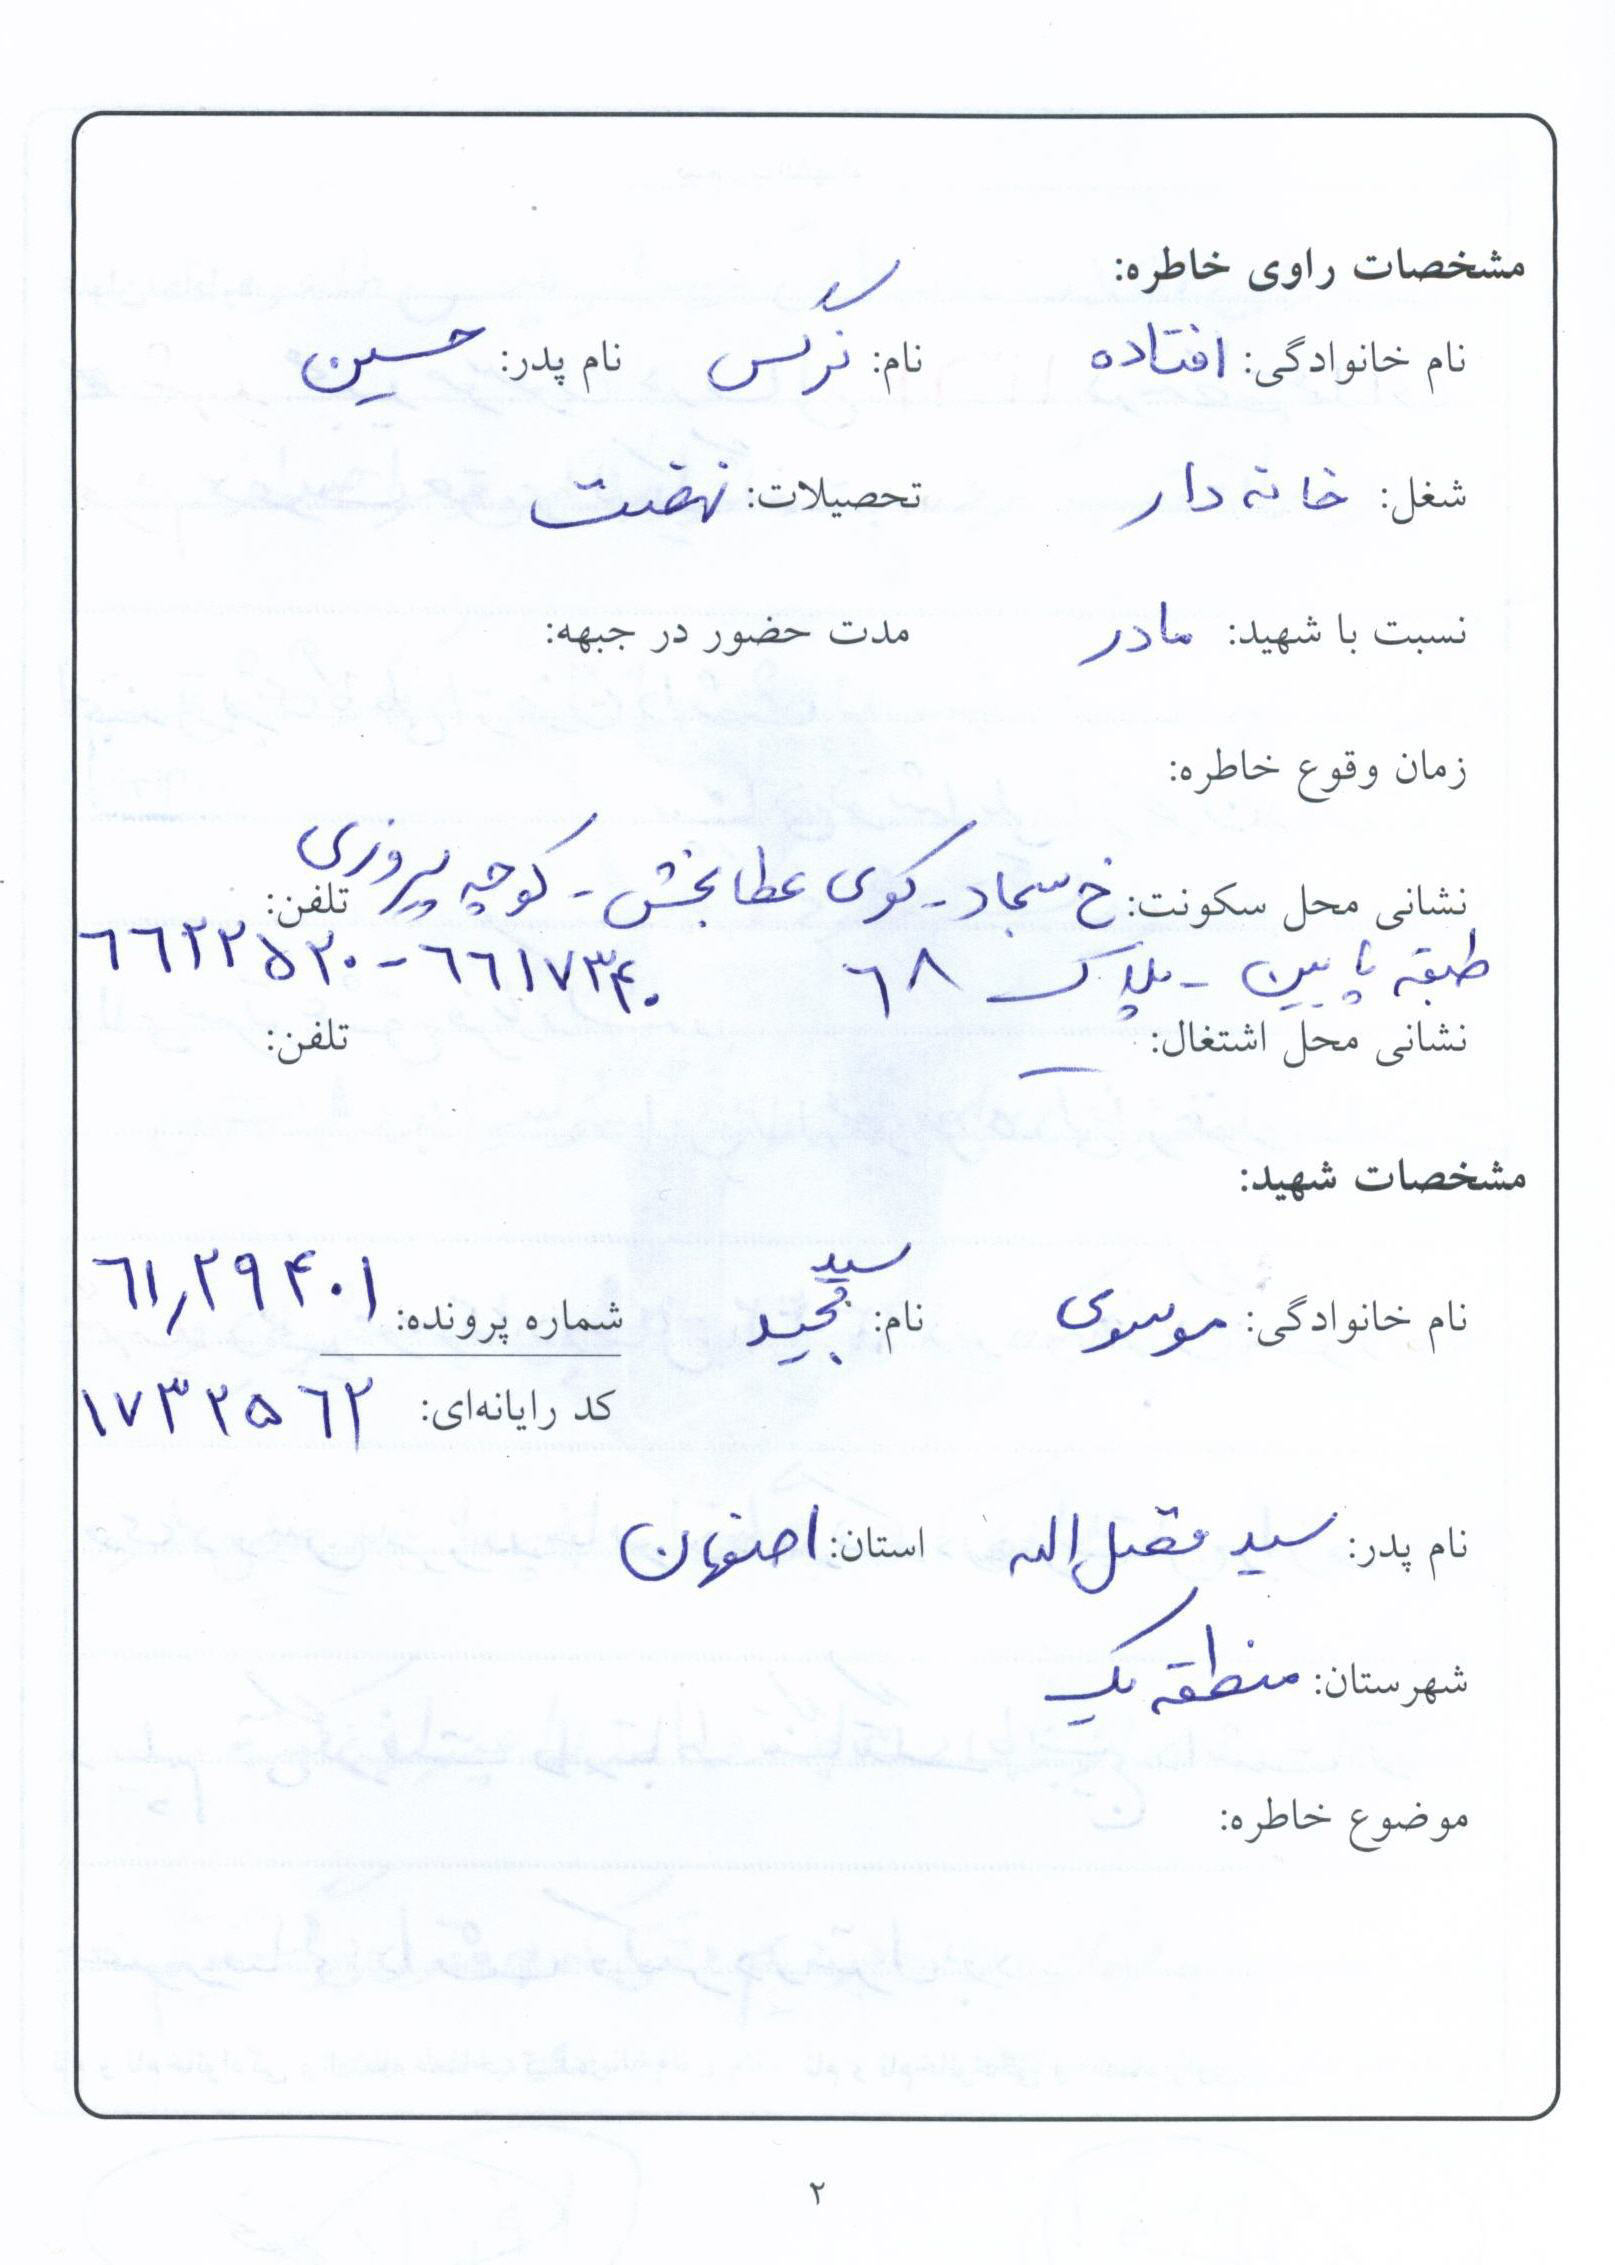 مشخصات راوی خاطره:
نام خانوادگی: افتاده نام: نرگس نام پدر: حسین
شغل: خانه دار تحصیلات: نهضت
نسبت با شهید: مادر مدت حضور در جبهه:
زمان وقوع خاطره:
نشانی محل سکونت: خ سجاد - کوی عطابخش - کوچه پیروزی تلفن:
طبقه پایین - پلاک ٦٨ ٦٦١٧٣٤٠ - ٦٦٢٢٥٢٠
نشانی محل اشتغال: — تلفن:
مشخصات شهید:
نام خانوادگی: موسوی نام: سید مجید شماره پرونده: ٦١٫٢٩٤٠١
کد رایانه‌ای: ١٧٣٢٥٦٢
نام پدر: سید فضل الله استان: اصفهان
شهرستان: منطقه یک
موضوع خاطره:
٢